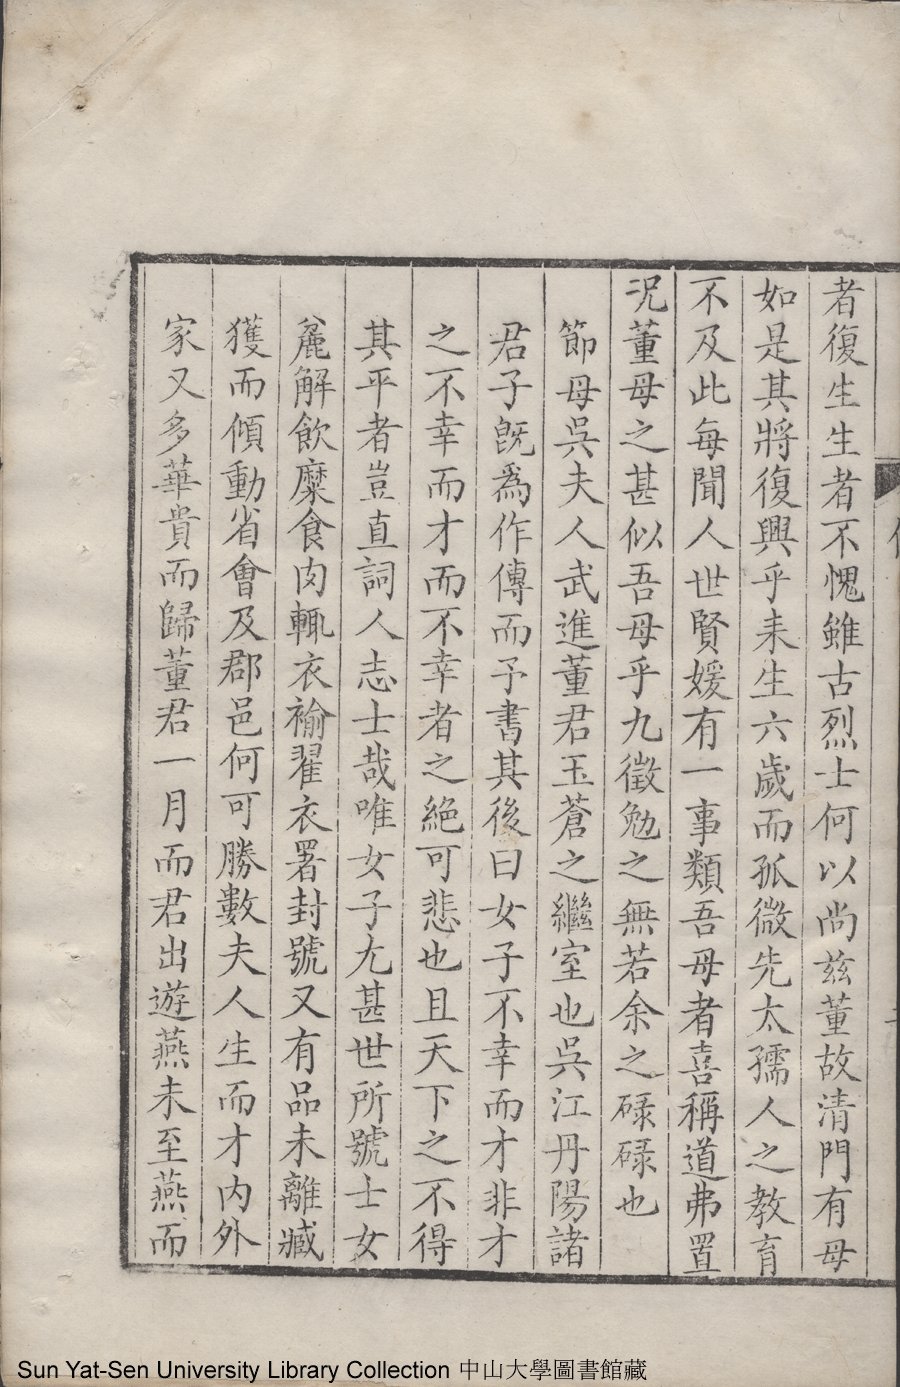 者復生生者不愧雖古烈士何以尚兹董故清門有母
如是其將復興乎耒生六歲而孤微先太孺人之教育
不及此每聞人世賢媛有一事類吾母者喜稱道弗置
况董母之甚似吾母乎九徵勉之無若余之碌碌也
節母吳夫人武進董君玉蒼之繼室也吳江丹陽諸
君子旣爲作傳而予書其後曰女子不幸而才非才
之不幸而才而不幸者之絕可悲也且天下之不得
其平者豈直詞人志士哉唯女子尤甚世所號士女
麄解飲糜食肉輒衣褕翟衣署封號又有品未離臧
獲而傾動省會及郡邑何可勝數夫人生而才内外
家又多華貴而歸董君一月而君出遊燕未至燕而
Sun Yat-Sen University Library Collection 中山大學圖書館藏